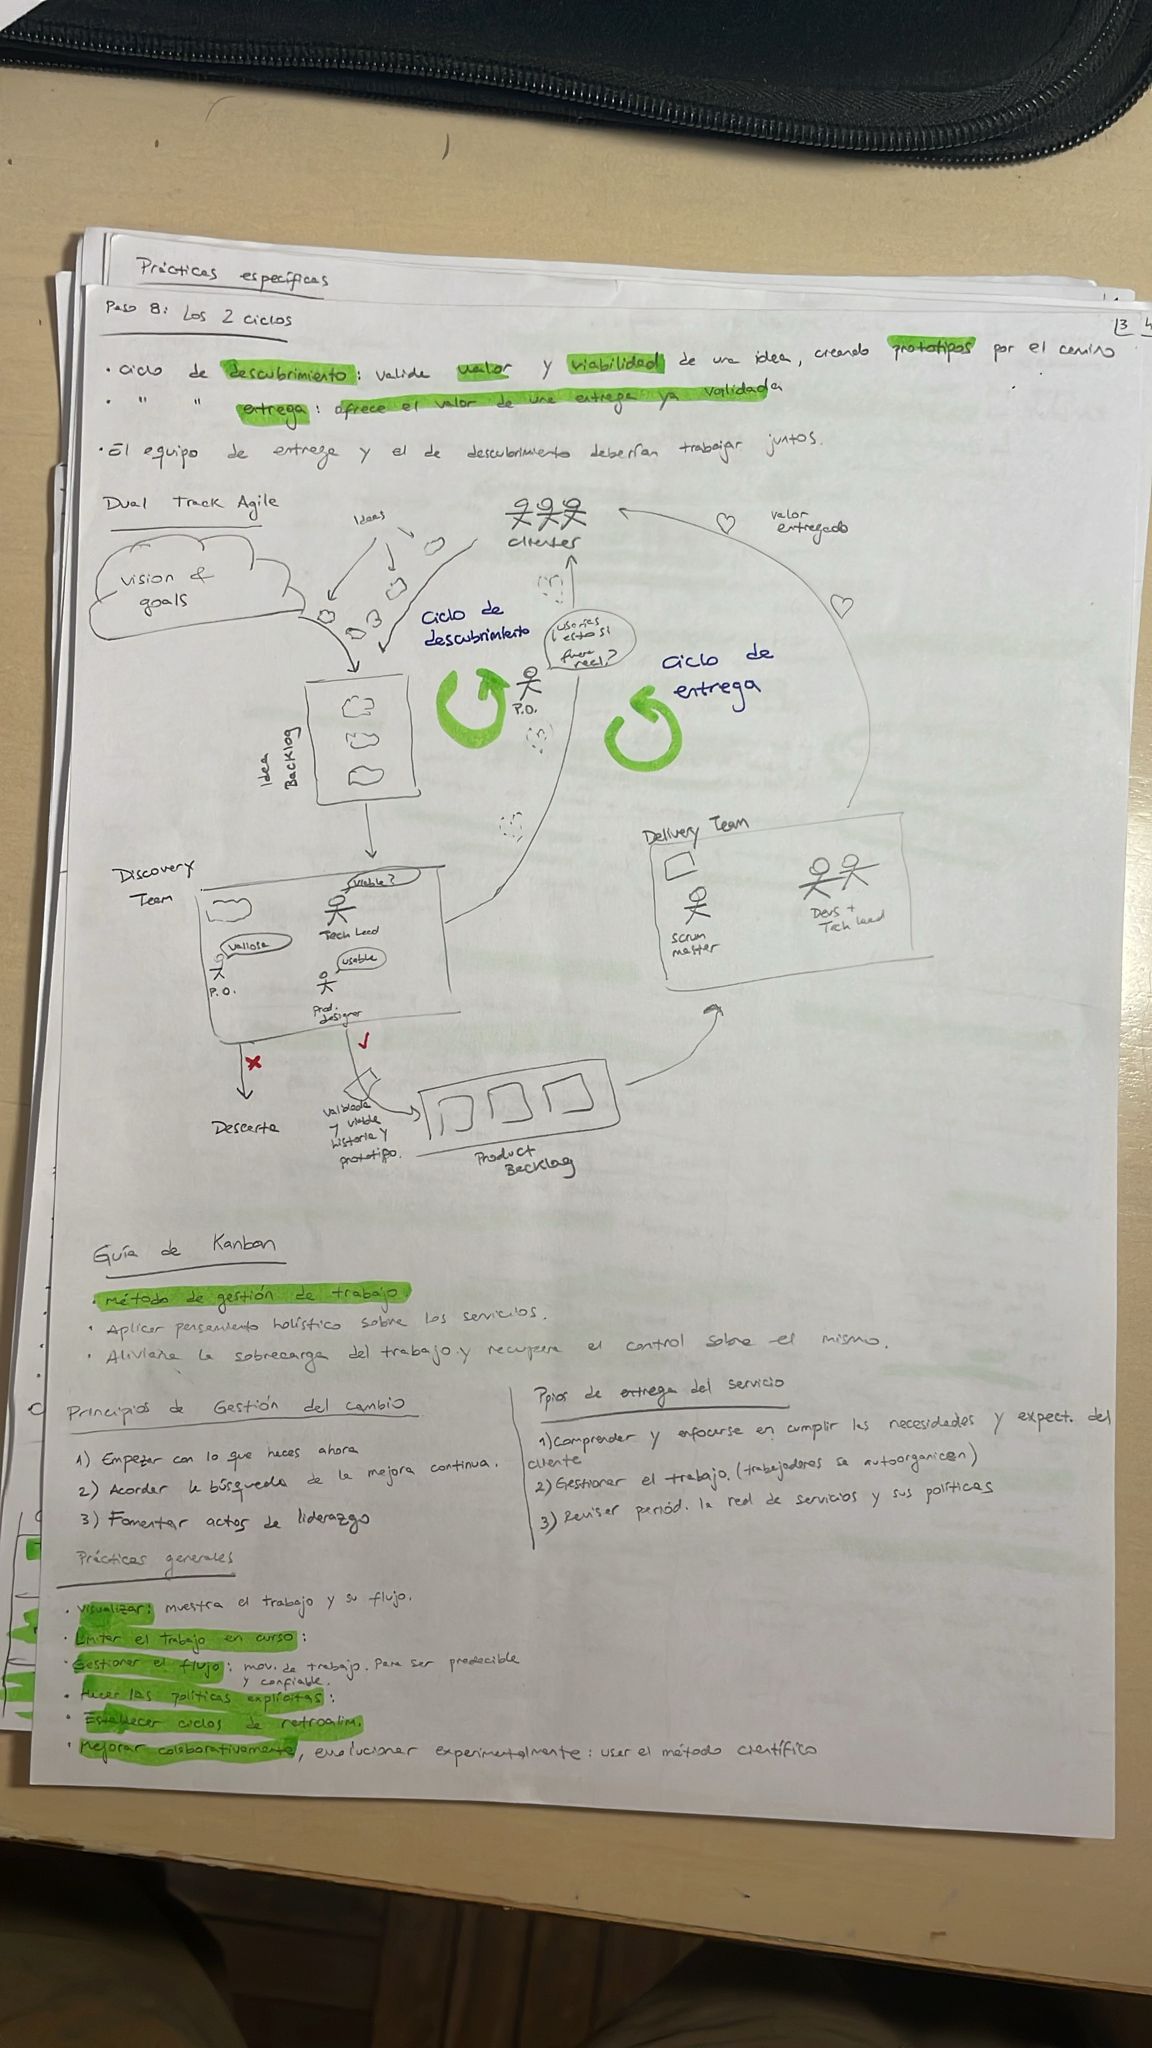 Prácticas específicas
Paso 8: Los 2 ciclos
3
· ciclo de descubrimiento: valida valor y viabilidad de una idea, creando prototipos por el camino
· " " entrega: ofrece el valor de una entrega ya validada
· El equipo de entrega y el de descubrimiento deberían trabajar juntos.
Dual Track Agile
Ideas
clientes
valor
entregado
vision &
goals
ciclo de
descubrimiento
usarías
esto si
fuera
real?
P.O.
ciclo de
entrega
Idea
Backlog
Delivery Team
Discovery
Team
viable?
Tech Lead
valiosa
P.O.
usable
Prod.
designer
scrum
master
Devs +
Tech Lead
Descarta
validada
y viable
historia y
prototipo.
Product
Backlog
Guía de Kanban
· Método de gestión de trabajo
· Aplicar pensamiento holístico sobre los servicios.
· Aliviana la sobrecarga del trabajo y recupera el control sobre el mismo.
Principios de Gestión del cambio
1) Empezar con lo que haces ahora
2) Acordar la búsqueda de la mejora continua.
3) Fomentar actos de liderazgo
Ppios de entrega del servicio
1) Comprender y enfocarse en cumplir las necesidades y expect. del
cliente
2) Gestionar el trabajo. (trabajadores se autoorganicen)
3) Revisar periód. la red de servicios y sus políticas
Prácticas generales
· Visualizar: muestra el trabajo y su flujo.
· Limitar el trabajo en curso:
· Gestionar el flujo: mov. de trabajo. Para ser predecible
y confiable.
· Hacer las políticas explícitas:
· Establecer ciclos de retroalim.
· Mejorar colaborativamente, evolucionar experimentalmente: usar el método científico